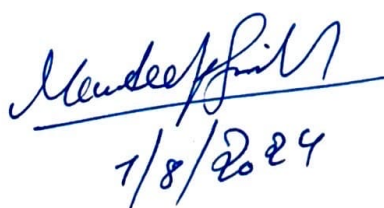 Mandeep Singh
1/8/2024